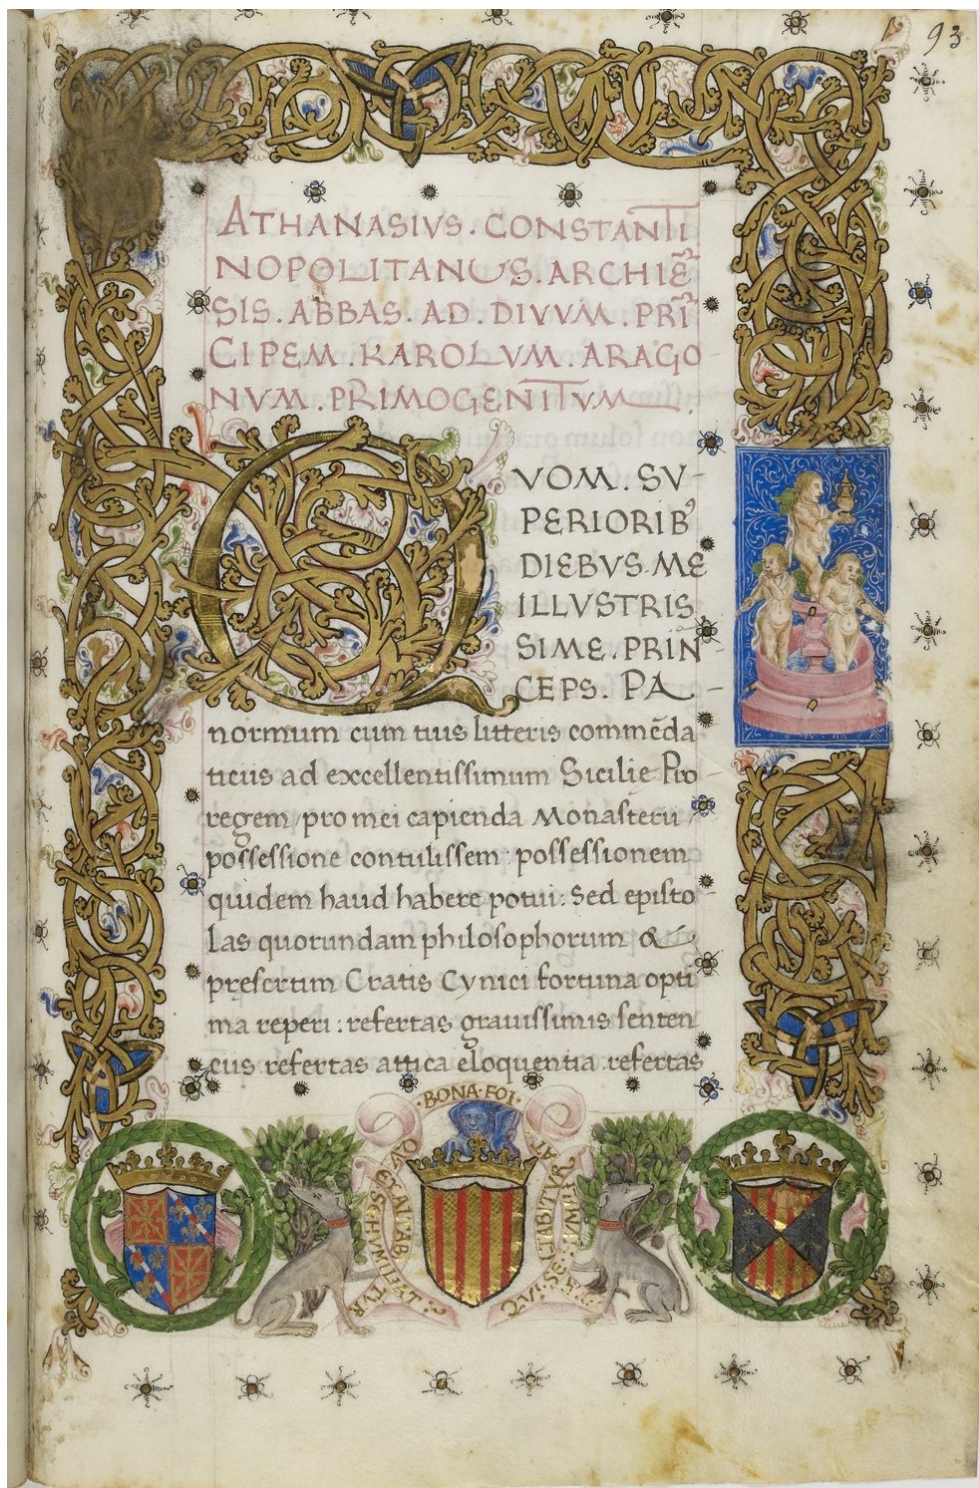 93
ATHANASIVS. CONSTANTI
NOPOLITANUS. ARCHIĒ
SIS. ABBAS. AD. DIVVM. PRĪ
CIPEM. KAROLVM. ARAGO
NVM. PRIMOGENITVM.
QVOM. SV-
PERIORIBꝰ
DIEBVS. ME
ILLVSTRIS
SIME. PRIN-
CEPS. PA-
normum cum tuis litteris commēda
ticiis ad excellentissimum Sicilie Pro
regem / pro mei capienda Monasterii
possessione contulissem: possessionem
quidem haud habere potui: Sed episto
las quorundam philosophorum &
presertim Cratis Cynici fortuna opti
ma reperi: refertas grauissimis senten
ciis refertas attica eloquentia refertas
·BONA·FOI·
QVI·SE·EXALTABIT·
HVMILIABITVR